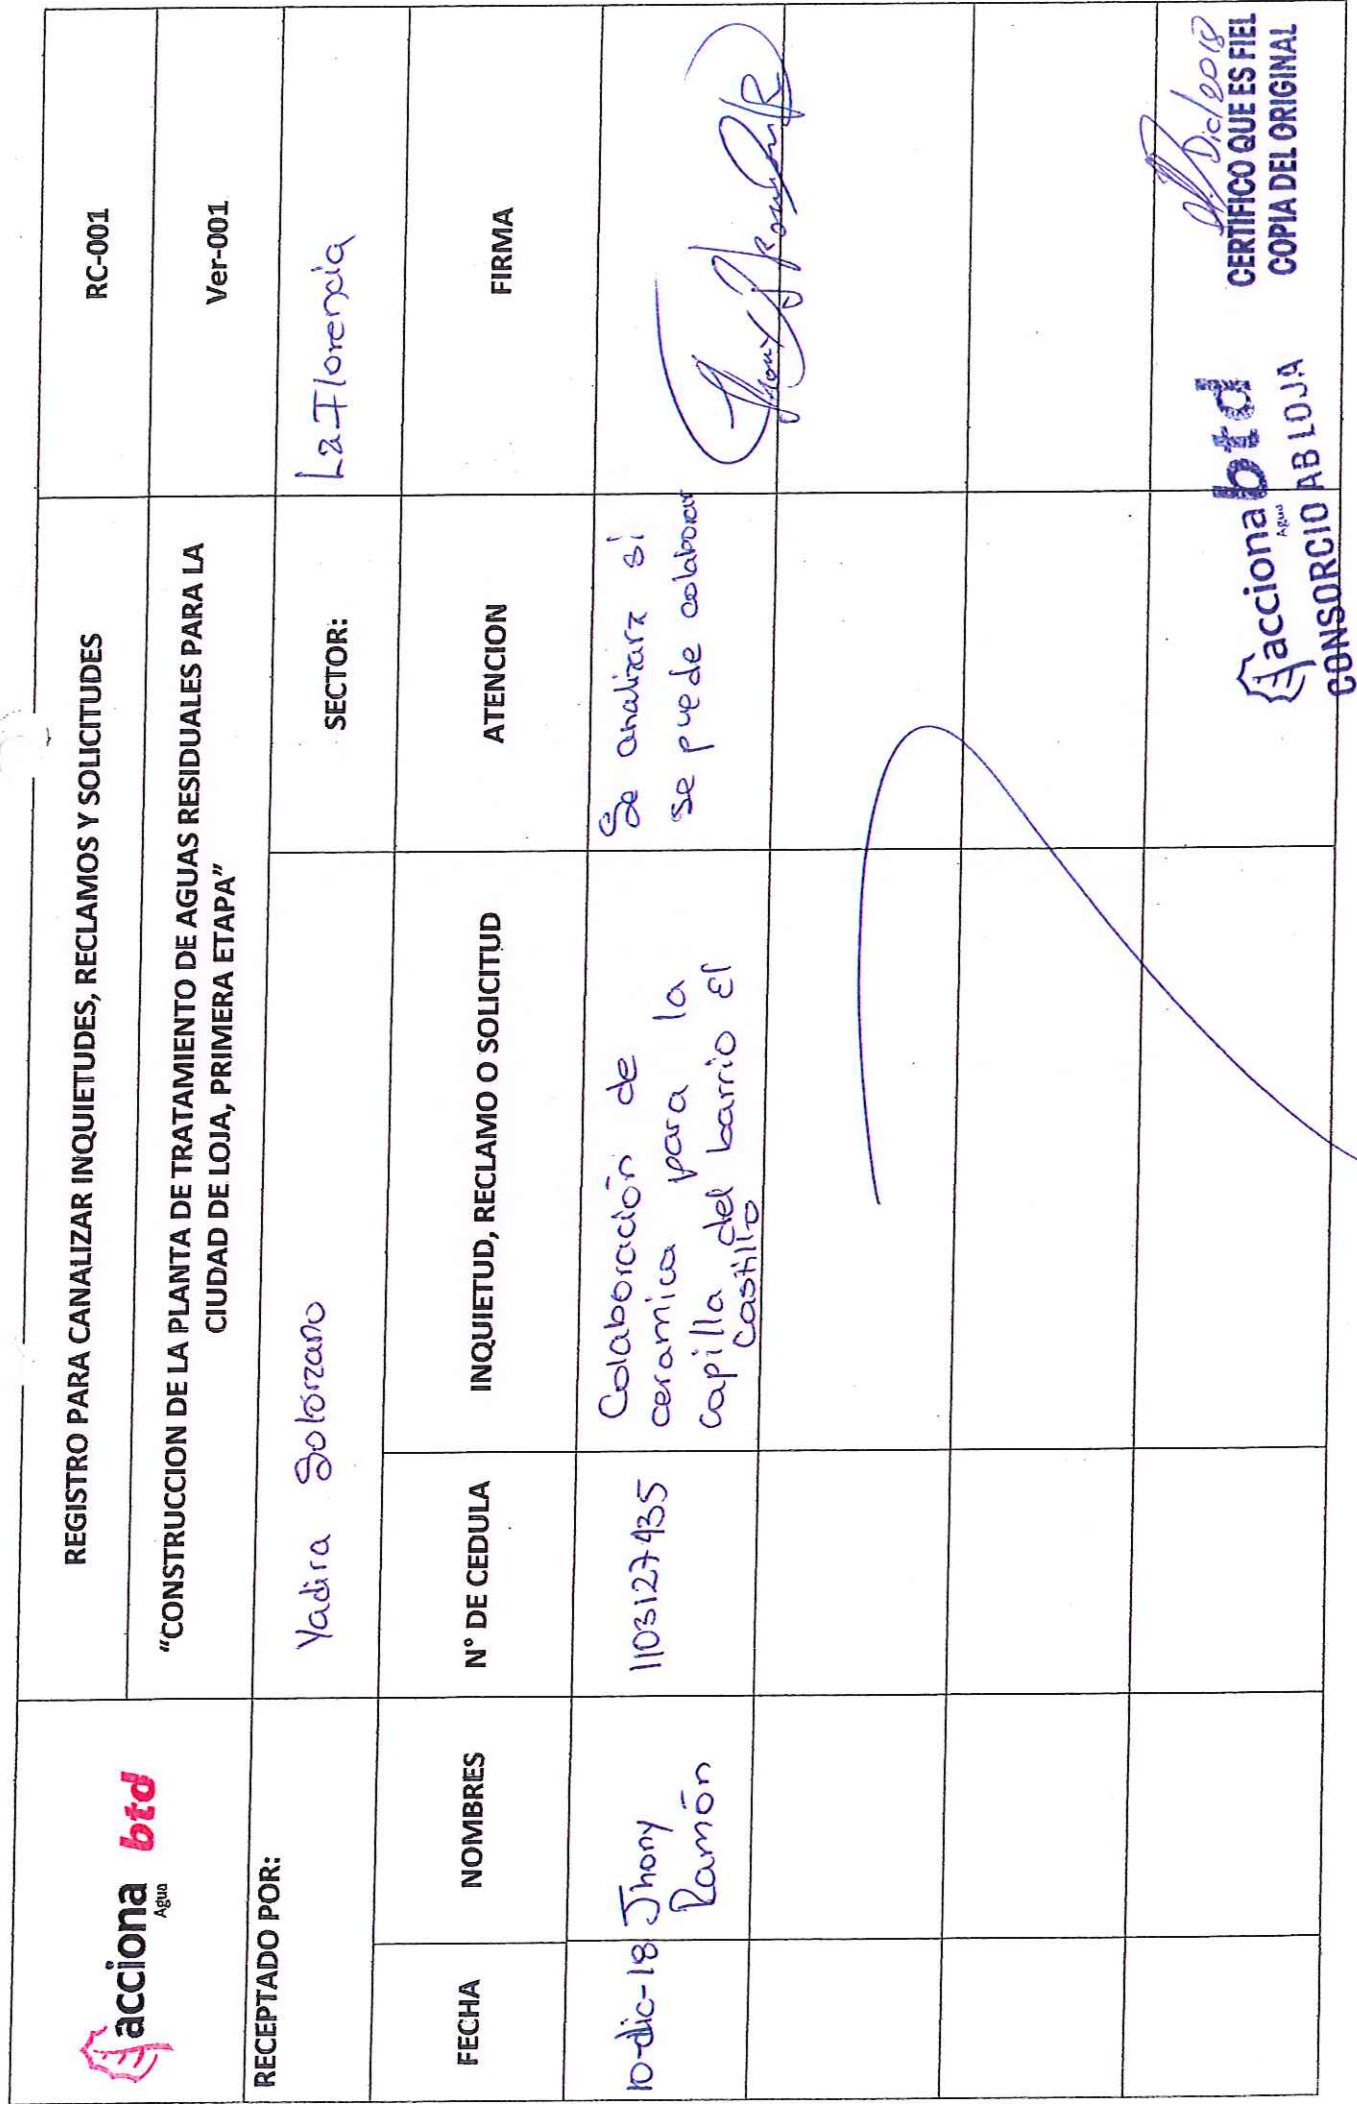 acciona btd
Agua
REGISTRO PARA CANALIZAR INQUIETUDES, RECLAMOS Y SOLICITUDES
RC-001
"CONSTRUCCION DE LA PLANTA DE TRATAMIENTO DE AGUAS RESIDUALES PARA LA
CIUDAD DE LOJA, PRIMERA ETAPA"
Ver-001
RECEPTADO POR:
Yadira Solorzano
SECTOR:
La Florencia
FECHA
NOMBRES
N° DE CEDULA
INQUIETUD, RECLAMO O SOLICITUD
ATENCION
FIRMA
10-dic-18
Jhony
Ramón
1103127435
Colaboración de
ceramica para la
capilla del barrio El
Castillo
Se analizara si
se puede colaborar
acciona btd
Agua
CONSORCIO AB LOJA
Dic/2018
CERTIFICO QUE ES FIEL
COPIA DEL ORIGINAL